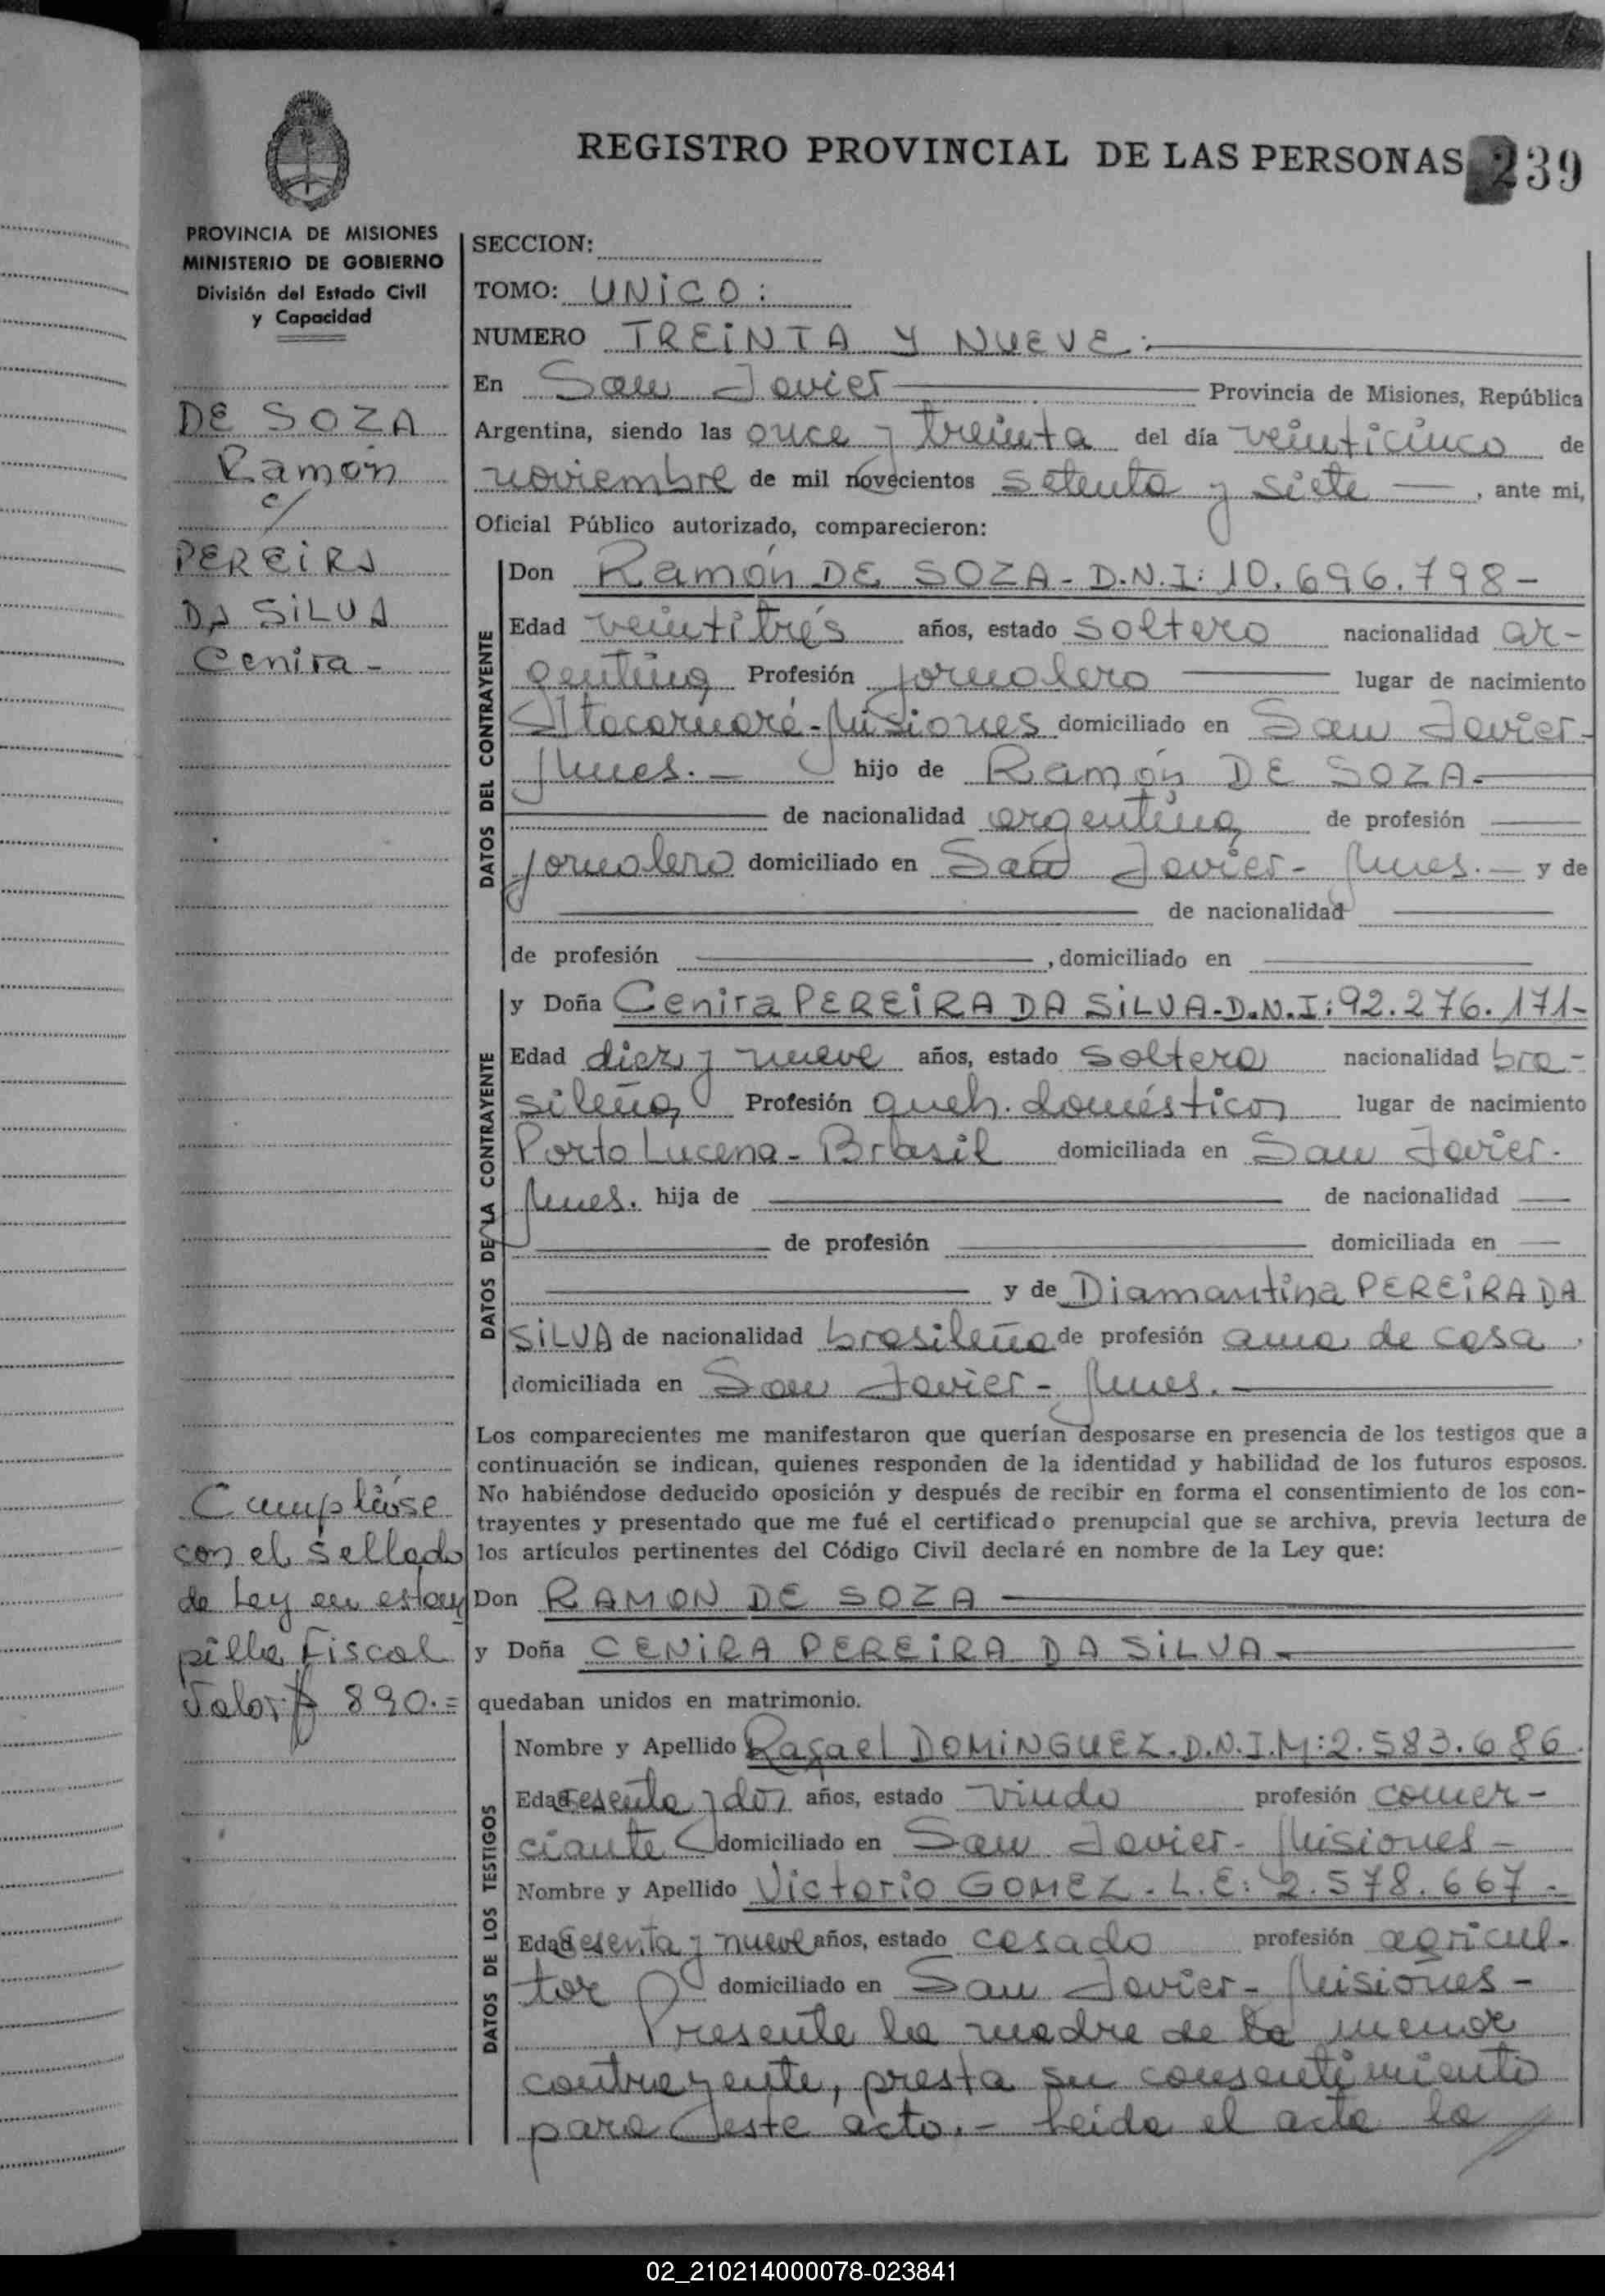 REGISTRO PROVINCIAL DE LAS PERSONAS 239
PROVINCIA DE MISIONES
MINISTERIO DE GOBIERNO
División del Estado Civil
y Capacidad
DE SOZA
Ramón
c/
PEREIRA
DA SILVA
Cenira -
Cumplióse
con el sellado
de Ley en estam
pilla Fiscal
Valor $ 890.=
SECCION:
TOMO: UNICO:
NUMERO TREINTA Y NUEVE:
En San Javier Provincia de Misiones, República
Argentina, siendo las once y treinta del día veinticinco de
noviembre de mil novecientos setenta y siete —, ante mi,
Oficial Público autorizado, comparecieron:
DATOS DEL CONTRAYENTE
Don Ramón DE SOZA - D.N.I: 10.696.798 -
Edad veintitrés años, estado soltero nacionalidad ar-
gentina Profesión jornalero lugar de nacimiento
Itacaruaré - Misiones domiciliado en San Javier -
Mnes. - hijo de Ramón DE SOZA -
de nacionalidad argentina de profesión
jornalero domiciliado en San Javier - Mnes. - y de
de nacionalidad
de profesión , domiciliado en
DATOS DE LA CONTRAYENTE
y Doña Cenira PEREIRA DA SILVA - D.N.I: 92.276.171 -
Edad diez y nueve años, estado soltera nacionalidad bra-
sileña Profesión queh. domésticos lugar de nacimiento
Porto Lucena - Brasil domiciliada en San Javier -
Mnes. hija de de nacionalidad
de profesión domiciliada en
y de Diamantina PEREIRA DA
SILVA de nacionalidad brasileña de profesión ama de casa
domiciliada en San Javier - Mnes. -
Los comparecientes me manifestaron que querían desposarse en presencia de los testigos que a
continuación se indican, quienes responden de la identidad y habilidad de los futuros esposos.
No habiéndose deducido oposición y después de recibir en forma el consentimiento de los con-
trayentes y presentado que me fué el certificado prenupcial que se archiva, previa lectura de
los artículos pertinentes del Código Civil declaré en nombre de la Ley que:
Don RAMON DE SOZA
y Doña CENIRA PEREIRA DA SILVA -
quedaban unidos en matrimonio.
DATOS DE LOS TESTIGOS
Nombre y Apellido Rafael DOMINGUEZ - D.N.I.M: 2.583.686
Edad sesenta y dos años, estado viudo profesión comer-
ciante domiciliado en San Javier - Misiones -
Nombre y Apellido Victorio GOMEZ - L.E: 2.578.667 -
Edad sesenta y nueve años, estado casado profesión agricul-
tor domiciliado en San Javier - Misiones -
Presente la madre de la menor
contrayente, presta su consentimiento
para este acto. - Leida el acta la
02_210214000078-023841